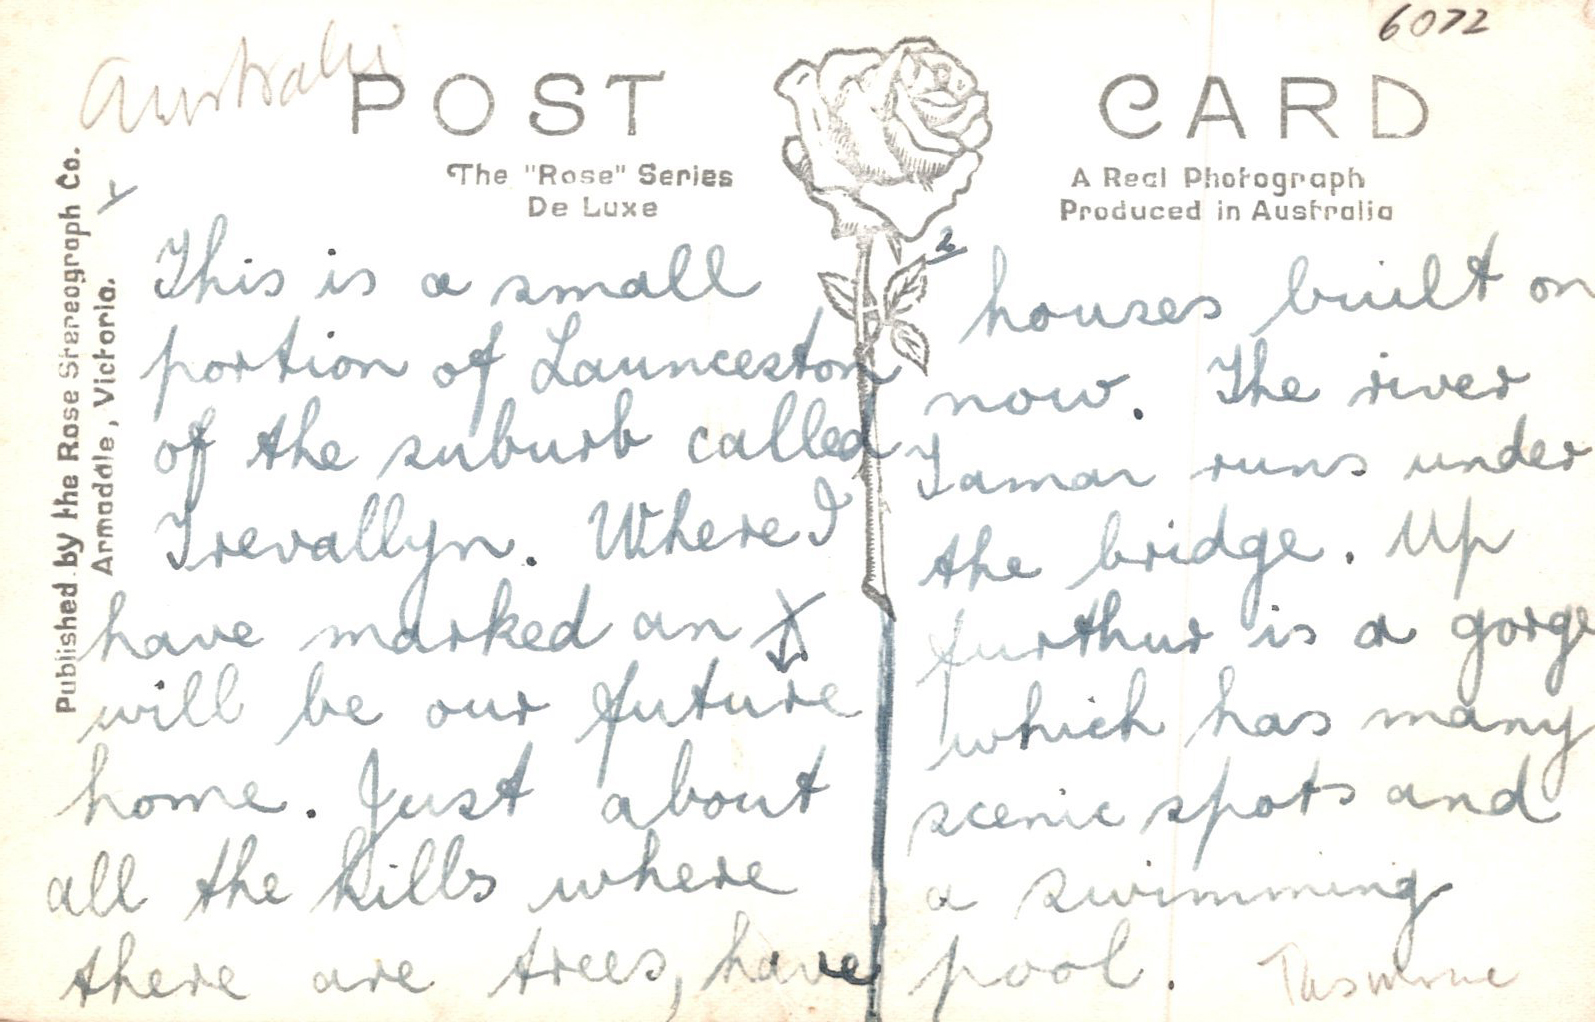 Australia
6072
POST CARD
The "Rose" Series
De Luxe
A Real Photograph
Produced in Australia
Published by the Rose Stereograph Co.
Armadale, Victoria.
This is a small
portion of Launceston
of the suburb called
Trevallyn. Where I
have marked an X
will be our future
home. Just about
all the hills where
there are trees, have
2
houses built on
now. The river
Tamar runs under
the bridge. Up
furthur is a gorge
which has many
scenic spots and
a swimming
pool.